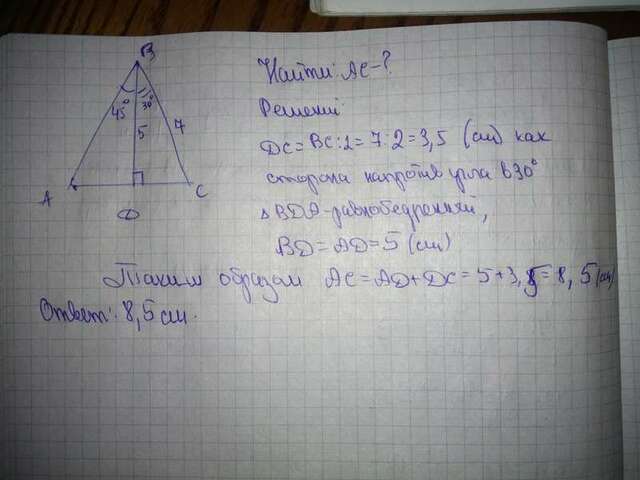 B
45°
30°
5
7
A
D
C
Найти: AC-?
Решений:
DC=BC:2=7:2=3,5 (см) как
сторона напротив угла в 30°
△BDA-равнобедренный,
BD=AD=5 (см)
Таким образом AC=AD+DC=5+3,5=8,5(см)
Ответ: 8,5 см.